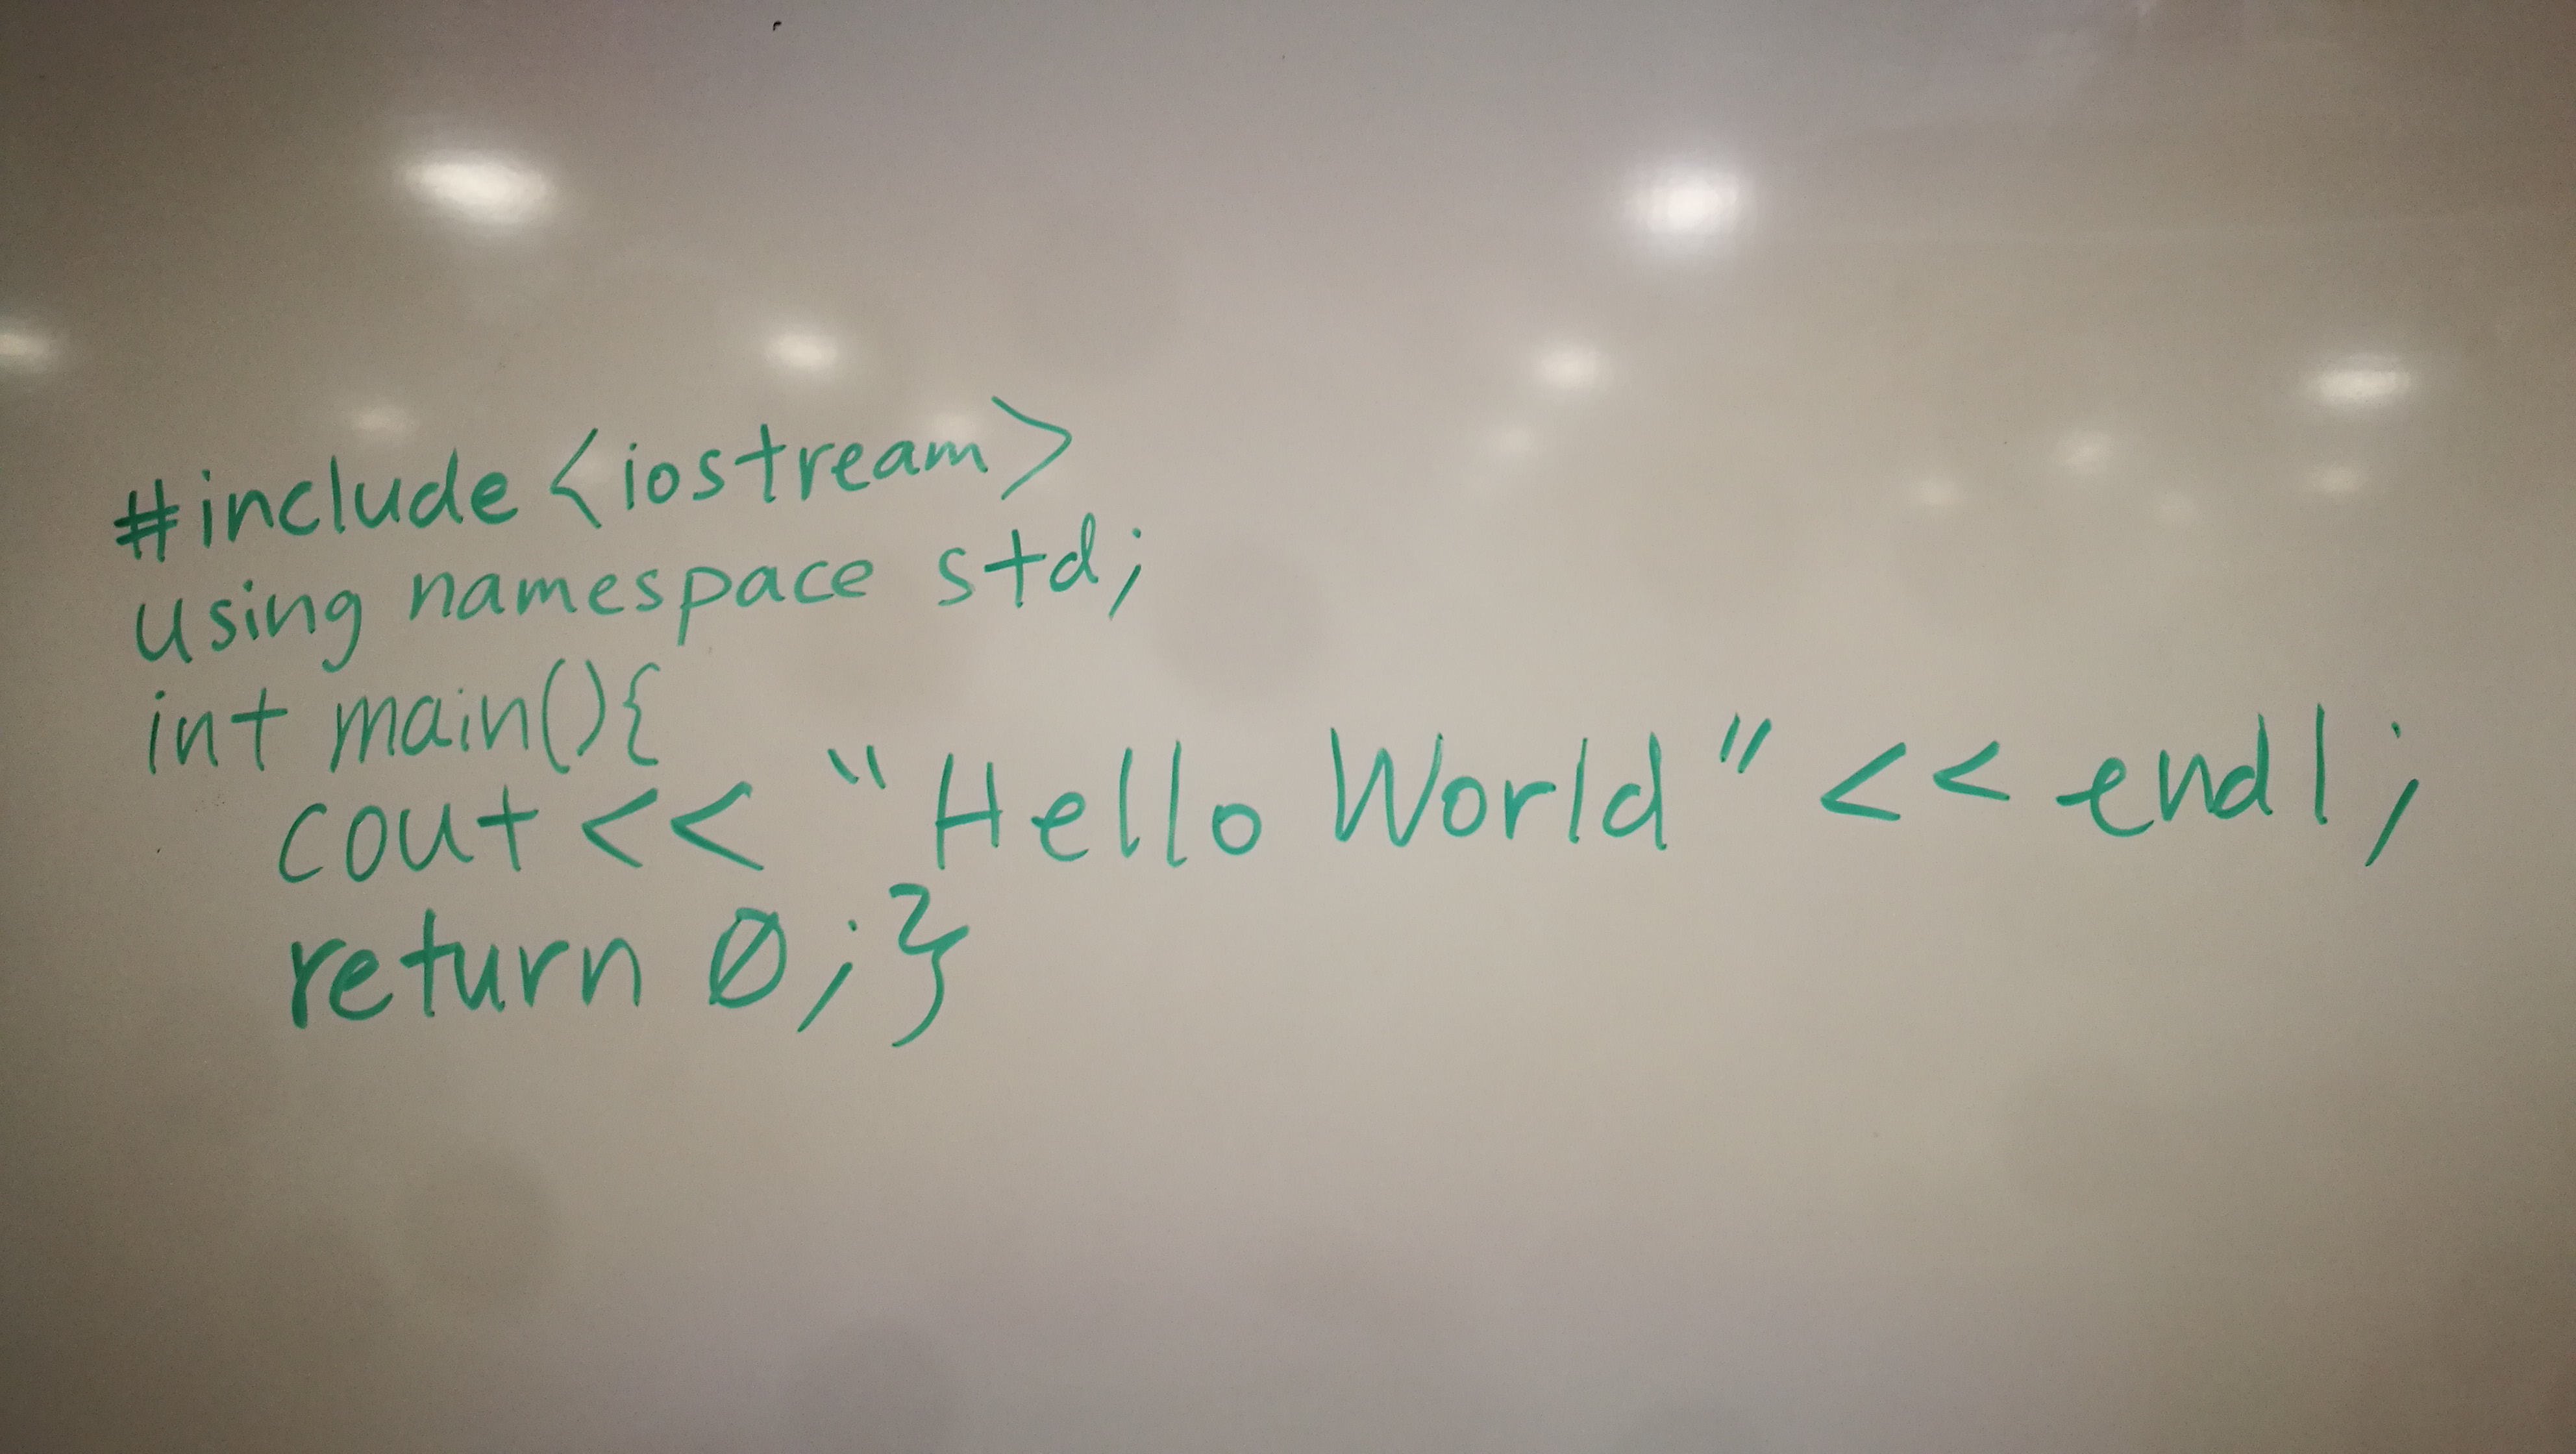 #include <iostream>
using namespace std;
int main(){
cout << "Hello World" << endl;
return 0;}